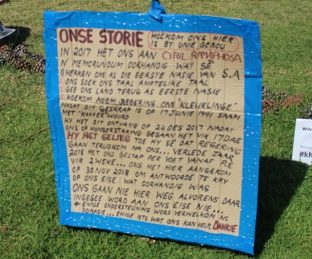 ONSE STORIE HOEKOM ONS HIER
IS BY UNIE GEBOU
IN 2017 HET ONS AAN CYRIL RAMAPHOSA
N' MEMORUNDUM OORHANDIG WAT SÊ
HERKEN ONS AS DIE EERSTE NASIE VAN S.A
ONS SOEK ONS TAAL AMPTELIKE TAAL
GEE ONS LAND TERUG AS EERSTE NASIE
HOEKOM NOEM REGERING ONS "KLEURLINGE"
NADAT DIT GESKRAP IS OP 17 JUNIE 1991 SAAM
MET KAFFER WOORD
HY HET DIT ONTVANG OP 24 DES 2017 NADAT
ONS OP HONGERSTAKING GEGAAN HET VIR 17 DAE
HY HET GELIEG TOE HY SÊ DAT REGERING
GAAN TERUGKOM NA ONS. VERLEDE JAAR
2018 HET ONS GESTAP PER VOET VANAF PE
VIR 3 WEKE... ONS HET HIER AANGEKOM
OP 30 NOV 2018 OM ANTWOORDE TE KRY
OP ONS EISE WAT OORHANDIG WAS
ONS GAAN NIE HIER WEG ALVORENS DAAR
INGEGEE WORD AAN ONS EISE NIE...
ENIGE ONDERSTEUNING WORD VERWELKOM, N'
DONASIE... ENIGE IETS WAT ONS KAN HELP DANKIE